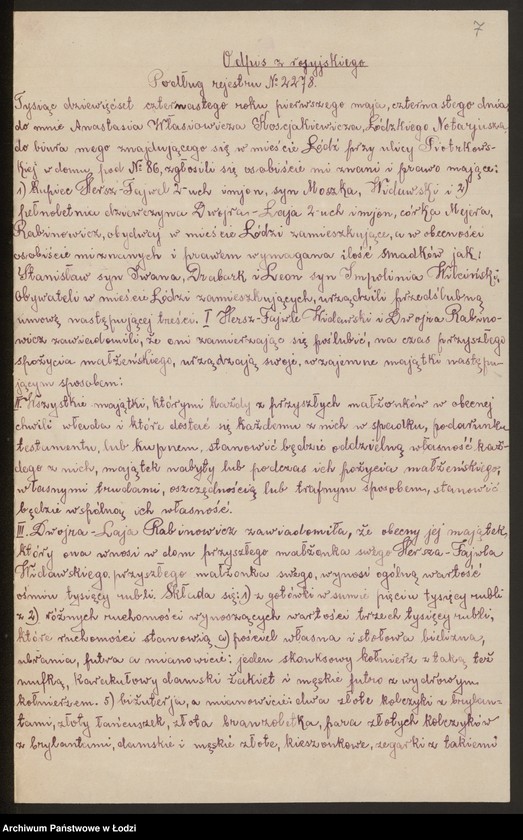 7
Odpis z rosyjskiego
Podług rejestru № 2278.
Tysiąc dziewięćset czternastego roku pierwszego maja, czternastego dnia,
do mnie Anastasia Własiowicza Koscjakiewicza, Łódzkiego Notarjusza,
do biura mego znajdującego się w mieście Łódzi przy ulicy Piotrkows-
kiej w domu pod № 86, zgłosili się osobiście mi znani i prawo mające:
1) Kupiec Hersz-Fajwel 2-uch imjon, syn Moszka, Widawski i 2)
pełnoletnia dziewczyna Dwojra-Łaja 2-uch imjon, córka Mejera,
Rabinowicz, obydwaj w mieście Łódzi zamieszkujące, a w obecności
osobiście mi znanych i prawem wymagana ilość swiadków jak:
Stanisław syn Iwana, Dziubark i Leon syn Impolinia Kilciński,
Obywateli w mieście Łódzi zamieszkujących, urządzili przedślubną
umowę następującej treści. I Hersz-Fajwel Widawski i Dwojra Rabino-
wicz zawiadomili, że oni zamierzając się poślubić, na czas przyszłego
spożycia małżeńskiego, urządzają swoje wzajemne majątki następu-
jącym sposobem:
II. Wszystkie majątki, którymi każdy z przyszłych małżonków w obecnej
chwili włada i które dostać się każdemu z nich w spadku, podarunku
testamentu, lub kupnem, stanowić będzie oddzielną własność każ-
dego z nich, majątek nabyty lub podczas ich pożycia małżeńskiego,
własnymi trudami, oszczędnością lub trafnym sposobem, stanowić
będzie wspólną ich własność.
III. Dwojra-Łaja Rabinowicz zawiadomiła, że obecny jej majątek,
który ona wnosi w dom przyszłego małżonka swego Hersza-Fajwla
Widawskiego, przyszłego małżonka swego, wynosi ogólną wartość
ośmiu tysięcy rubli. Składa się: 1) z gotówki w sumie pięciu tysięcy rubli
z 2) różnych ruchomości wynoszących wartości trzech tysięcy rubli,
które ruchomości stanowią a) pościel własna i stołowa bielizna,
ubrania, futra a mianowicie: jeden skonksowy kołnierz z taką też
mufką, karakułowy damski żakiet i męskie futro z wydrowym
kołnierzem. b) biżuterja, a mianowicie: dwa złote kolczyki z brylan-
tami, złoty łańcuszek, złota branzoletka, para złotych kolczyków
z brylantami, damskie i męskie złote, kieszonkowe, zegarki z takiemi
Archiwum Państwowe w Łodzi